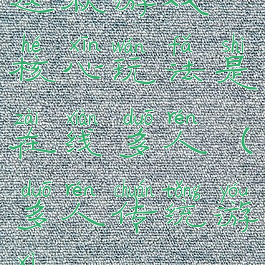 这款游戏
hé xīn wán fǎ shì
核心玩法是
zài xiàn duō rén
在线多人（
duō rén chuán tǒng yóu
多人传统游